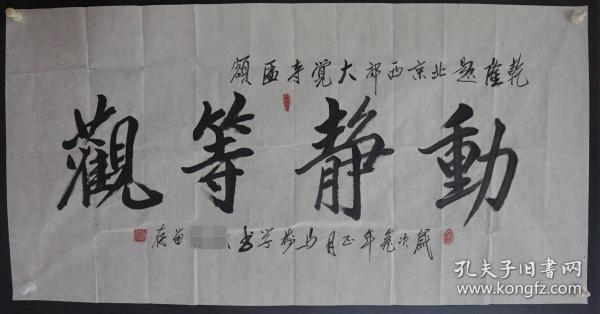 乾隆题北京西郊大覺寺匾額
動静等觀
歲次兔年正月学書
孔夫子旧书网
www.kongfz.com